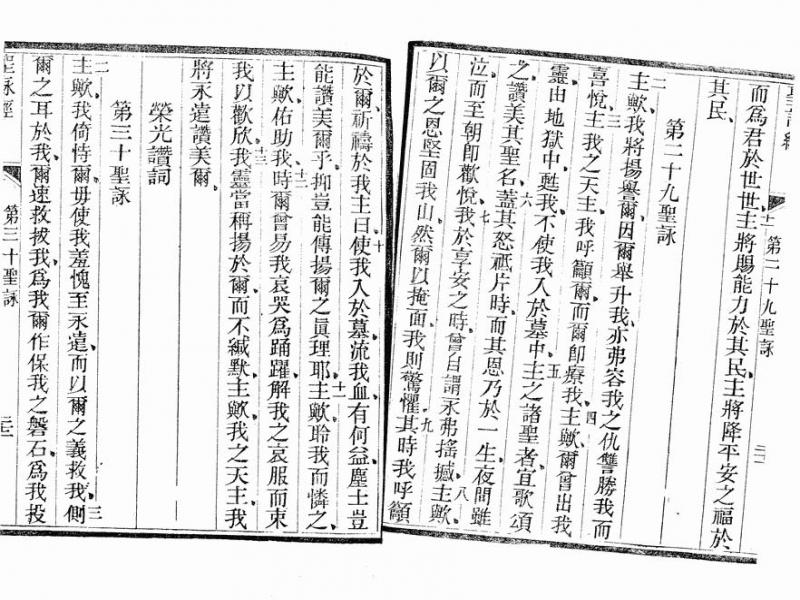 第二十九聖詠
而爲君於世世、十一主將賜能力於其民、主將降平安之福於
其民、
第二十九聖詠
二主歟、我將揚譽爾、因爾舉升我、亦弗容我之仇讐勝我而
喜悅、三主、我之天主、我呼籲爾、而爾卽療我、四主歟、爾曾出我
靈由地獄中、甦我、不使我入於墓中、五主之諸聖者、宜歌頌
之、讚美其聖名、六蓋其怒祗片時、而其恩乃於一生、夜間雖
泣、而至朝卽歡悅、七我於享安之時、曾自謂永弗搖撼、八主歟、
以爾之恩、堅固我山、然爾以掩面、我則驚懼、九其時我呼籲
於爾、祈禱於我主曰、十使我入於墓、流我血有何益、塵土豈
能讚美爾乎、抑豈能傳揚爾之眞理耶、十一主歟、聆我而憐之、
主歟、佑助我、十二時爾曾易我哀哭爲踊躍、解我之哀服、而束
我以歡欣、十三我靈當稱揚於爾、而不緘默、主歟、我之天主、我
將永遠讚美爾、
榮光讚詞
第三十聖詠
二主歟、我倚恃爾、毋使我羞愧至永遠、而以爾之義救我、三側
爾之耳於我、爾速救拔我、爲我爾作保我之磐石、爲我投
聖詠經
第三十聖詠